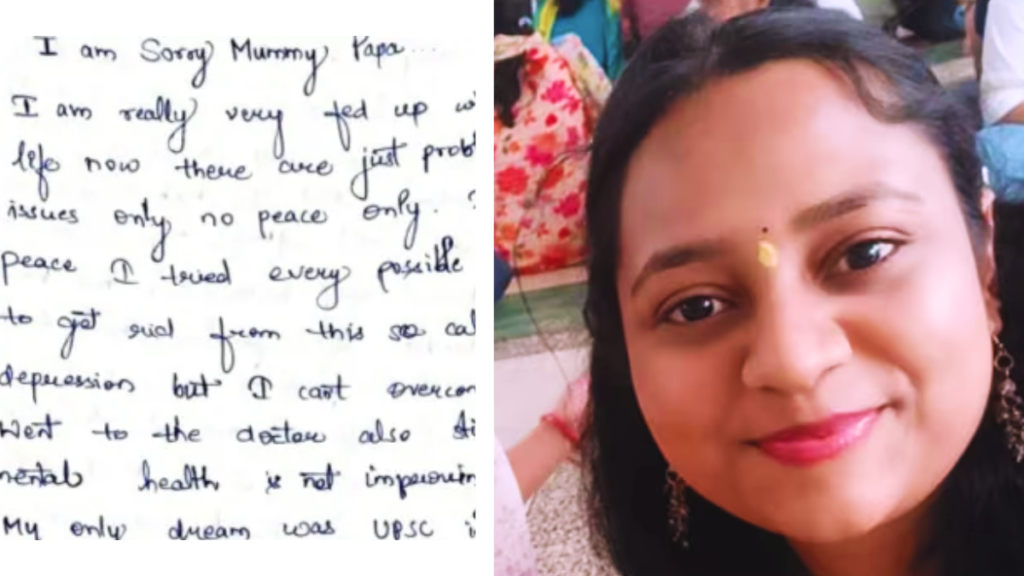 I am Sorry Mummy Papa...
I am really very fed up
life now there are just
issues only no peace only.
peace I tried every possible
to get rid from this so
depression but I can't
Went to the doctor also
mental health is not
My only dream was UPSC